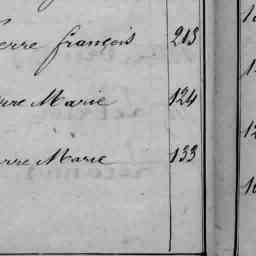 erre françois 213
rre Marie 124
erre Marie 133